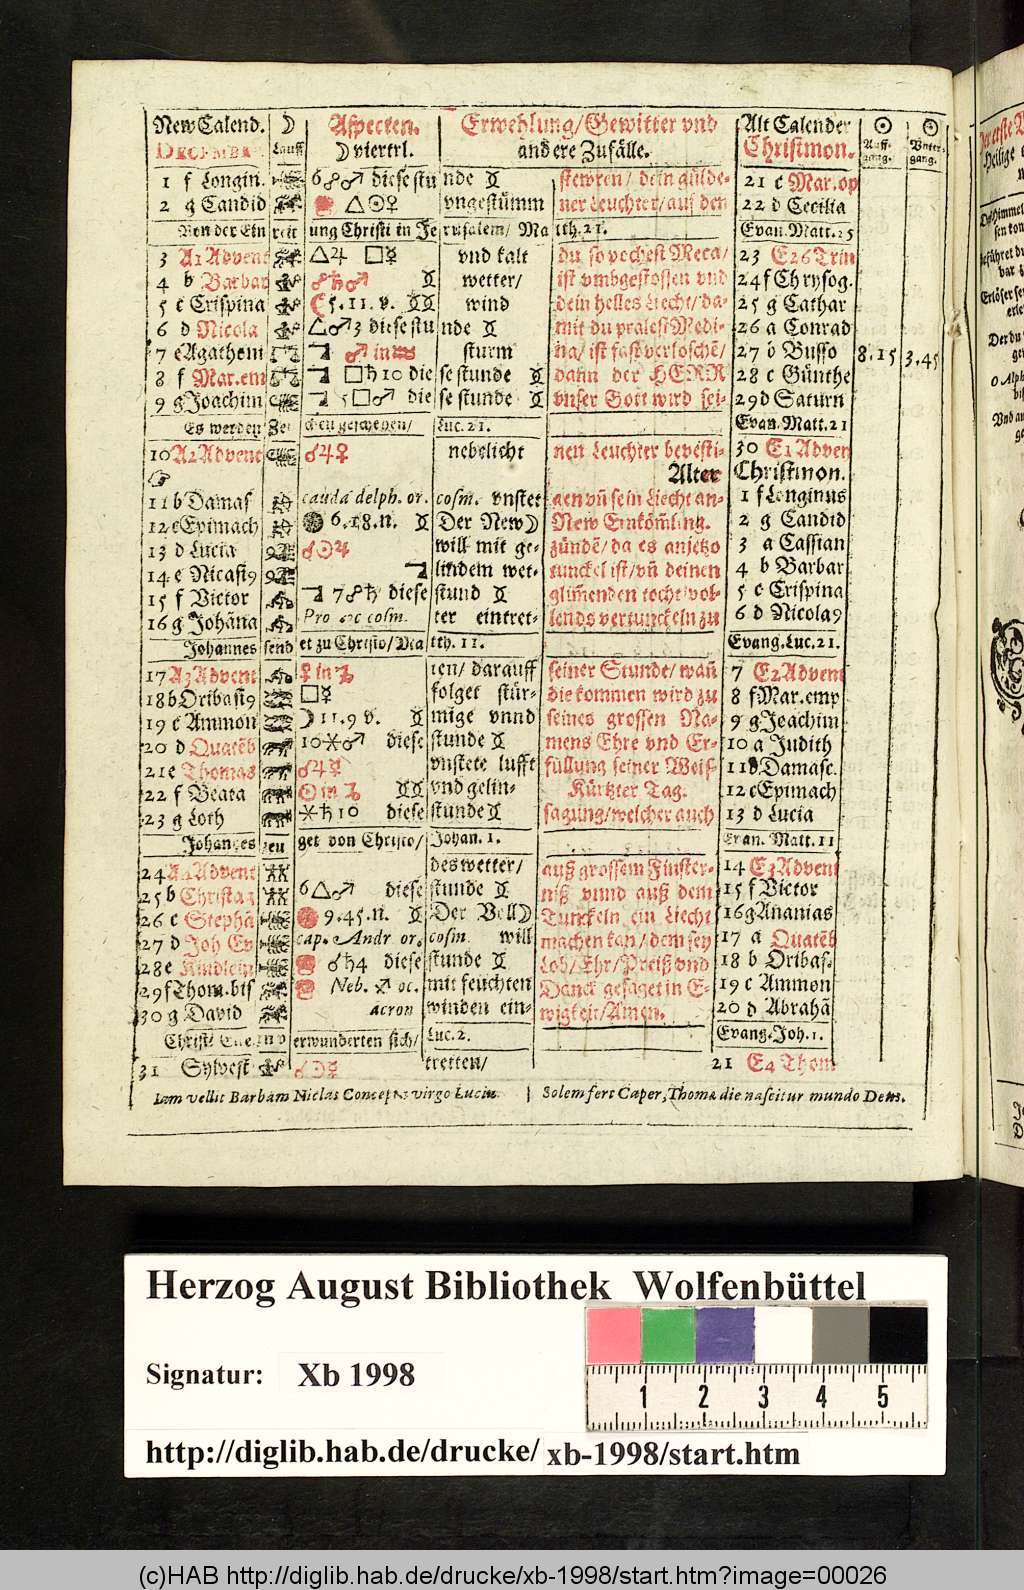 New Calend. ☽ Aspecten. Erwehlung/Gewitter vnd Alt Calender ☉ ☉
DECEMBER. Lauff ☽viertrl. andere Zufälle. Christmon. Auff-gang. Vnter-gang.
1 f Longin. 6 ☍♂ diese stunde stewren/ dein gülde- 21 c Mar. op
2 g Candid △☉♀ vngestümm ner Leuchter/ auf den 22 d Cecilia
Von der Einreitung Christi in Jerusalem/ Matth. 21. Evan. Matt. 25
3 A1 Advent △♃ □☿ vnd kalt du so pochest Meca/ 23 E26 Trin
4 b Barbar ☍♄♂ wetter/ ist vmbgestossen vnd 24 f Chrysog.
5 c Crispina ☾5.11.v. wind dein helles Liecht/ da- 25 g Cathar
6 d Nicola △♂3 diese stunde mit du pralest Medi- 26 a Conrad
7 e Agathem ♂ in ♒ sturm na/ ist fast verloschẽ/ 27 b Busso 8.15 3.45
8 f Mar. em □♄10 diese stunde dann der HERR 28 c Günthe
9 g Joachim 5□♂ diese stunde vnser Gott wird sei- 29 d Saturn
Es werden Zeichen geschehen/ Luc. 21. Evan. Matt. 21
10 A2 Advent ♂♃♀ nebelicht nen Leuchter bevesti- 30 E1 Adven
Alter Christmon.
11 b Damas cauda delph. or. cosm. vnstet gen vñ sein Liecht an- 1 f Longinus
12 c Epimach 6.18.n. Der New☽ New Einkõmling. 2 g Candid
13 d Lucia ☌☉♃ will mit ge- zündẽ/ da es anjetzo 3 a Cassian
14 e Nicasi9 lindem wet- tunckel ist/ vñ deinen 4 b Barbar
15 f Victor 7☍♄ diese stund glimenden tocht vol- 5 c Crispina
16 g Johãna Pro cosm. ter eintret- lends vertunckeln zu 6 d Nicola9
Johannes send et zu Christo/ Matth. 11. Evang. Luc. 21.
17 A3 Advent ♀ in ♑ ten/ darauff seiner Stunde/ wañ 7 E2 Advent
18 b Oribasi9 □☿ folget stür- die kommen wird zu 8 f Mar. emp
19 c Ammon ☽11.9 v. mige vnnd seines grossen Na- 9 g Joachim
20 d Quatẽb 10⚹♂ diese stunde mens Ehre vnd Er- 10 a Judith
21 e Thomas ♂♃☿ vnstete lufft füllung seiner Weis- 11 b Damasc.
22 f Beata ☉ in ♑ vnd gelin- Kürtzter Tag. 12 c Epimach
23 g Loth ⚹♄10 diese stunde sagung/ welcher auch 13 d Lucia
Johannes zeuget von Christo/ Johan. 1. Evan. Matt. 11
24 A4 Advent des wetter/ auß grossem Finster- 14 E3 Advent
25 b Christag 6△♂ diese stunde niß vnnd auß dem 15 f Victor
26 c Stephã 9.45.n. Der Voll☽ Tunckeln ein Liecht 16 g Ananias
27 d Joh Ev cap. Andr or. cosm. will machen kan/ dem sey 17 a Quatẽb
28 e Kindlein ☌♄4 diese stunde Lob/ Ehr/ Preiß vnd 18 b Oribas.
29 f Thom. bis Neb. ♐ oc. mit feuchten Danck gesaget in E- 19 c Ammon
30 g David acron winden ein- wigkeit/ Amen. 20 d Abrahã
Christi erwunderten sich/ Luc. 2. Evang. Joh. 1.
31 Sylvest ☌☉☿ tretten/ 21 E4 Thom
Iam vellit Barbam Niclas virgo Lucia. | Solem fert Caper, Thoma die nascitur mundo Deus.
Herzog August Bibliothek Wolfenbüttel
Signatur: Xb 1998
1 2 3 4 5
http://diglib.hab.de/drucke/ xb-1998/start.htm
(c)HAB http://diglib.hab.de/drucke/xb-1998/start.htm?image=00026